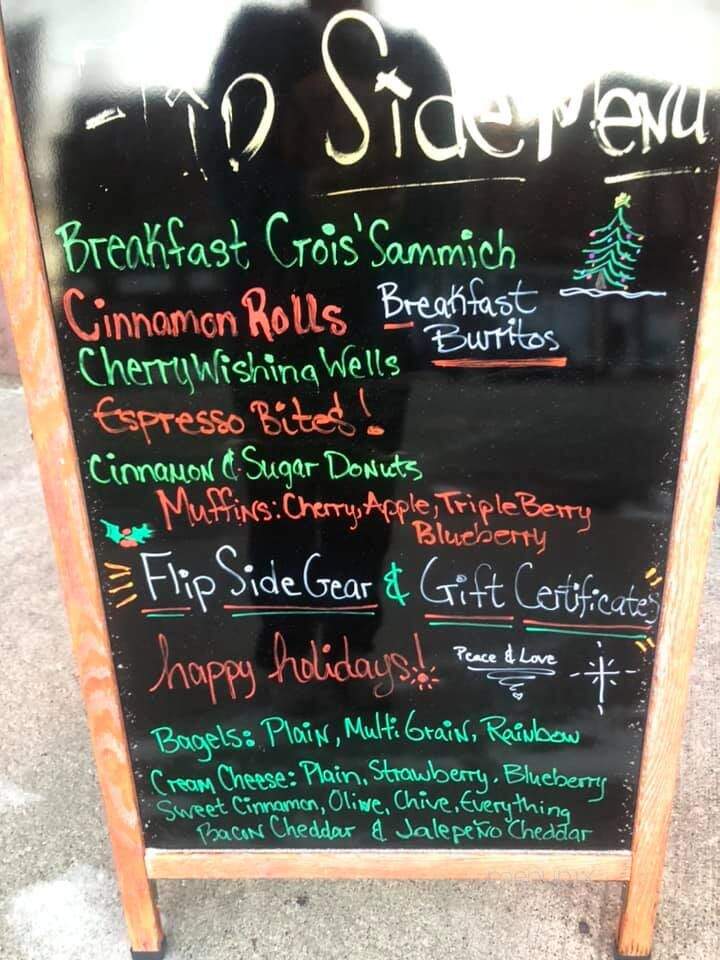 Side Menu
Breakfast Crois'Sammich
Cinnamon Rolls
Breakfast
Burritos
Cherry Wishing Wells
Espresso Bites!
Cinnamon & Sugar Donuts
Muffins: Cherry, Apple, Triple Berry
Blueberry
Flip Side Gear & Gift Certificates
happy holidays!
Peace & Love
Bagels: Plain, Multi Grain, Rainbow
Cream Cheese: Plain, Strawberry, Blueberry
Sweet Cinnamon, Olive, Chive, Everything
Bacon Cheddar & Jalepeño Cheddar